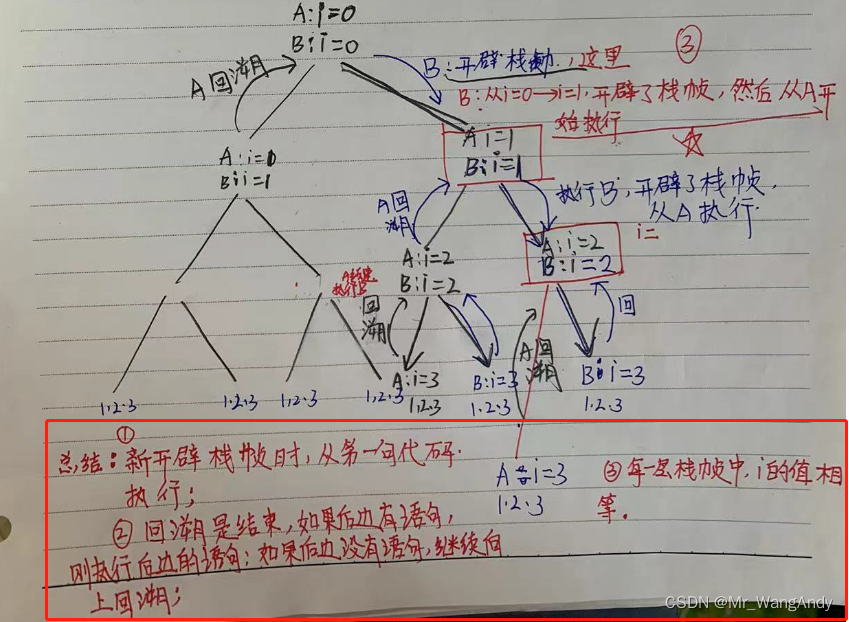 A:i=0
B:i=0
③
A回溯
B:开辟栈帧,这里
B:从i=0→i=1,开辟了栈帧,然后从A开
始执行
A:i=0
B:i=1
A i=1
B:i=1
A回
溯
执行B,开辟了栈帧,
从A执行.
i=
A:i=2
B:i=2
A:i=2
B:i=2
执行B
回
溯
A回
溯
回
A:i=3
B:i=3
B:i=3
1,2,3
1,2,3
1,2,3
1,2,3
1,2,3
1,2,3
1,2,3
①
总结:新开辟栈帧时,从第一句代码
执行;
A:i=3
1,2,3
③每一层栈帧中,i的值相
等.
②回溯是结束,如果后边有语句,
则执行后边的语句;如果后边没有语句,继续向
上回溯;
CSDN @Mr_WangAndy